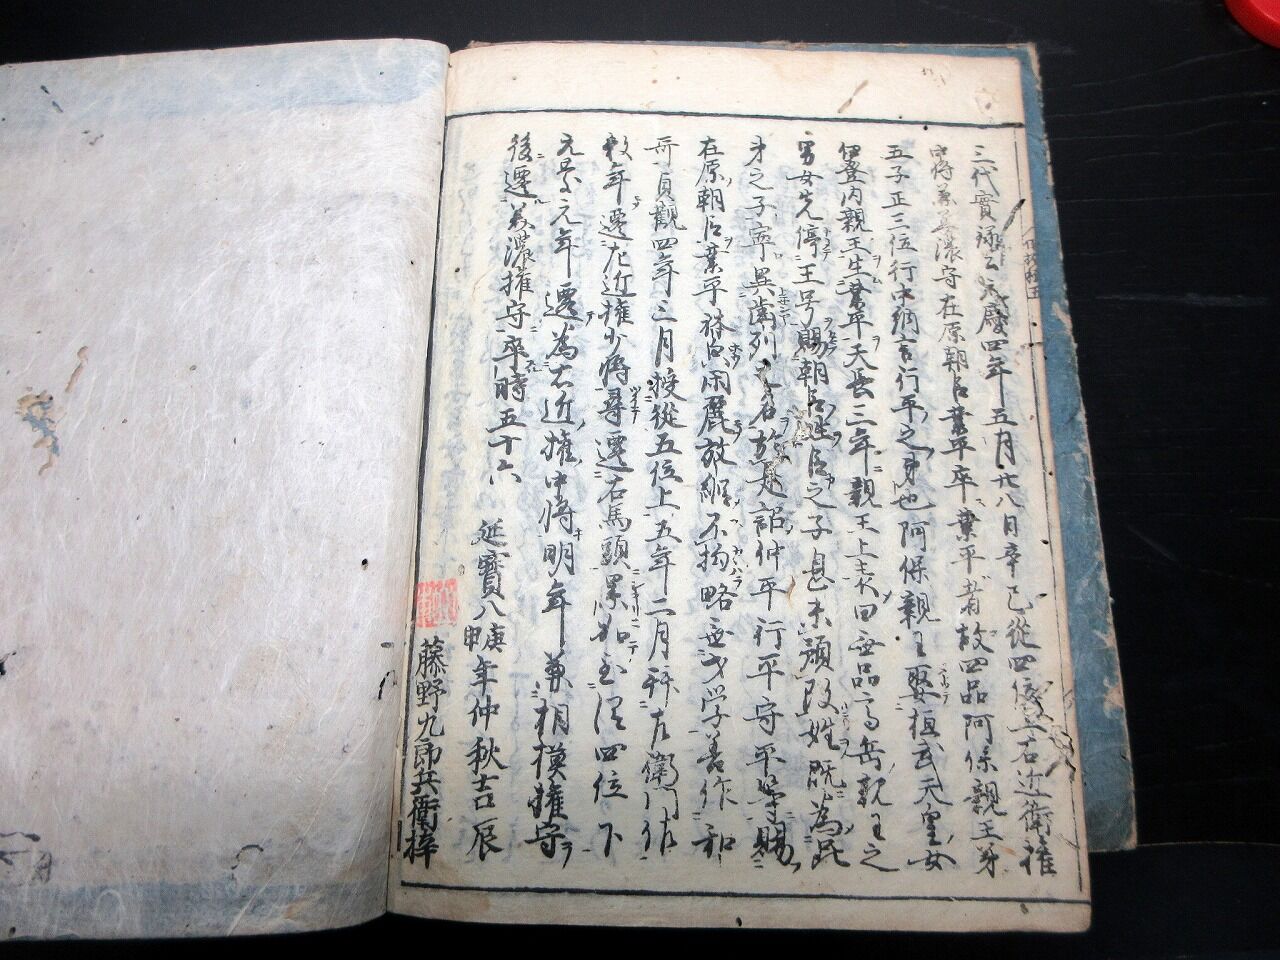 三代實录云元慶四年五月廿八日辛巳從四位上右近衛権
中将兼美濃守在原朝臣業平卒業平者故四品阿保親王第
五子正三位行中納言行平之弟也阿保親王娶桓武天皇女
伊登内親王生業平天長三年親王上表曰無品高岳親王之
男女先停王号賜朝臣姓臣之子息未預改姓既為昆
弟之子寧異歯列於是詔仲平行平守平等賜
在原朝臣業平体貌閑麗放縱不拘略無才学善作和
哥貞觀四年三月授從五位上五年二月拜左衛門佐
数年遷左近権少将尋遷右馬頭累加至從四位下
元慶元年遷為右近権中将明年兼相模権守
後遷美濃権守卒時五十六
延寶八庚申年仲秋吉辰
藤野九郎兵衛梓